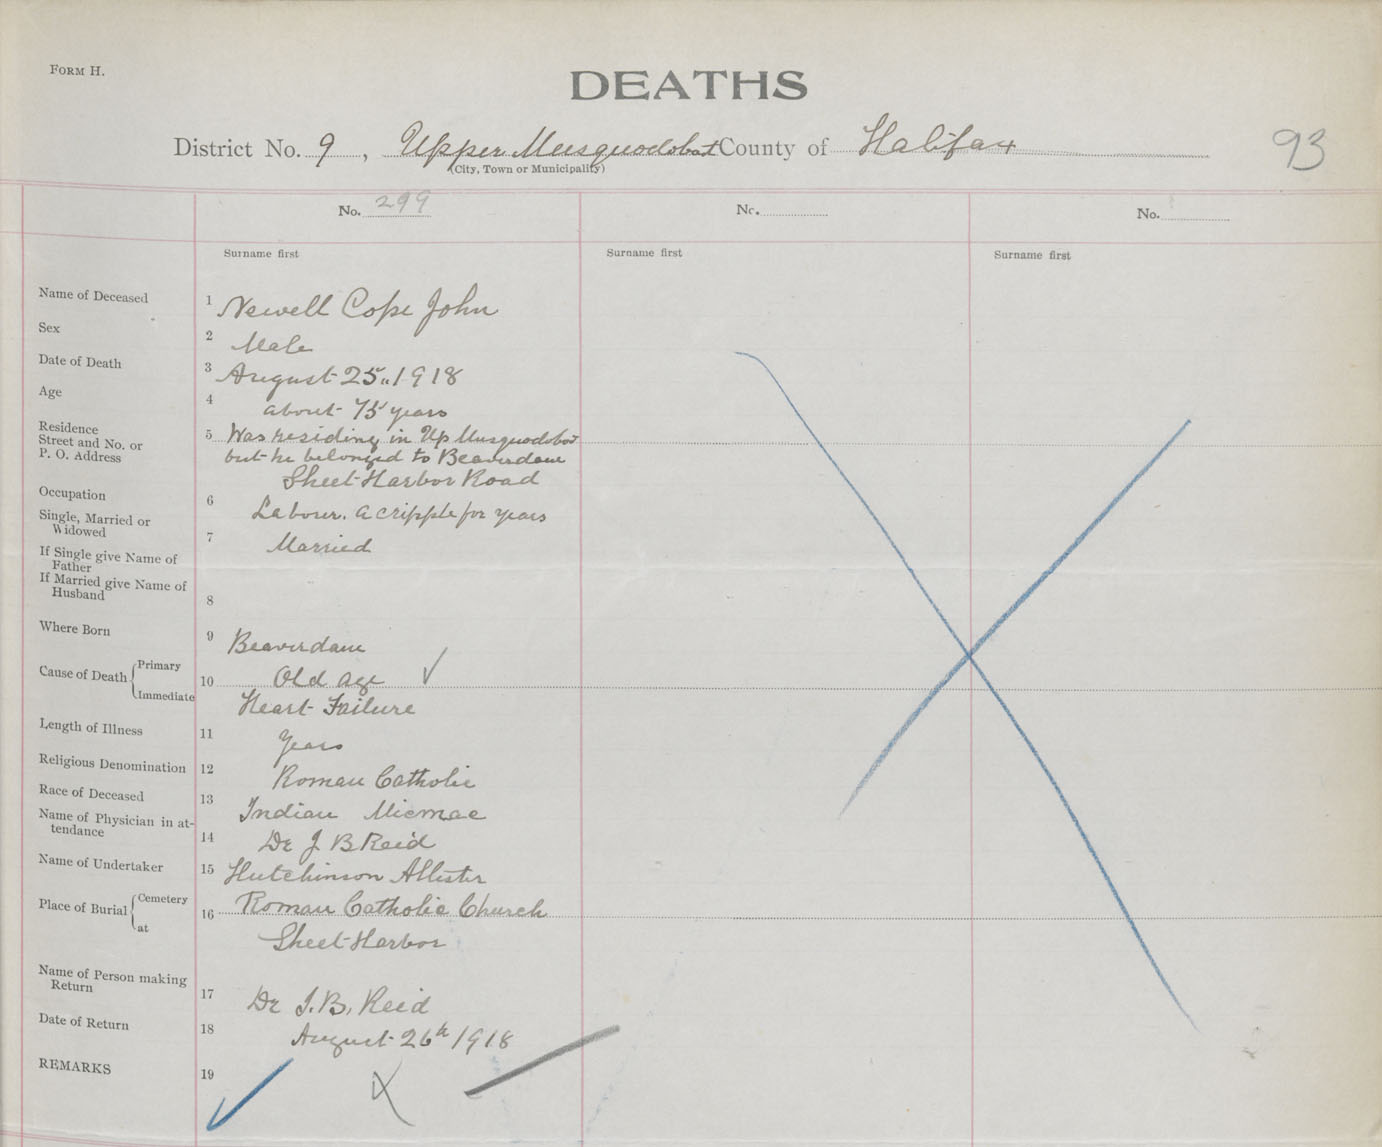 FORM H.
DEATHS
93
District No. 9, Upper Musquodobot County of Halifax
(City, Town or Municipality)
No. 299
No.
No.
Surname first
Surname first
Surname first
Name of Deceased 1 Newell Cope John
Sex 2 Male
Date of Death 3 August 25, 1918
Age 4 about 75 years
Residence
Street and No. or
P. O. Address
5 Was residing in Up Musquodobot
but he belonged to Beaverdam
Sheet Harbor Road
Occupation 6 Labourer. a cripple for years
Single, Married or
Widowed
7 Married
If Single give Name of
Father
If Married give Name of
Husband
8
Where Born 9 Beaverdam
Cause of Death { Primary 10 Old Age
Immediate Heart Failure
Length of Illness 11 Years
Religious Denomination 12 Roman Catholic
Race of Deceased 13 Indian Micmac
Name of Physician in at-
tendance
14 Dr J. B Reid
Name of Undertaker 15 Hutchinson Allister
Place of Burial { Cemetery 16 Roman Catholic Church
at Sheet Harbor
Name of Person making
Return
17 Dr J. B. Reid
Date of Return 18 August 26th 1918
REMARKS 19